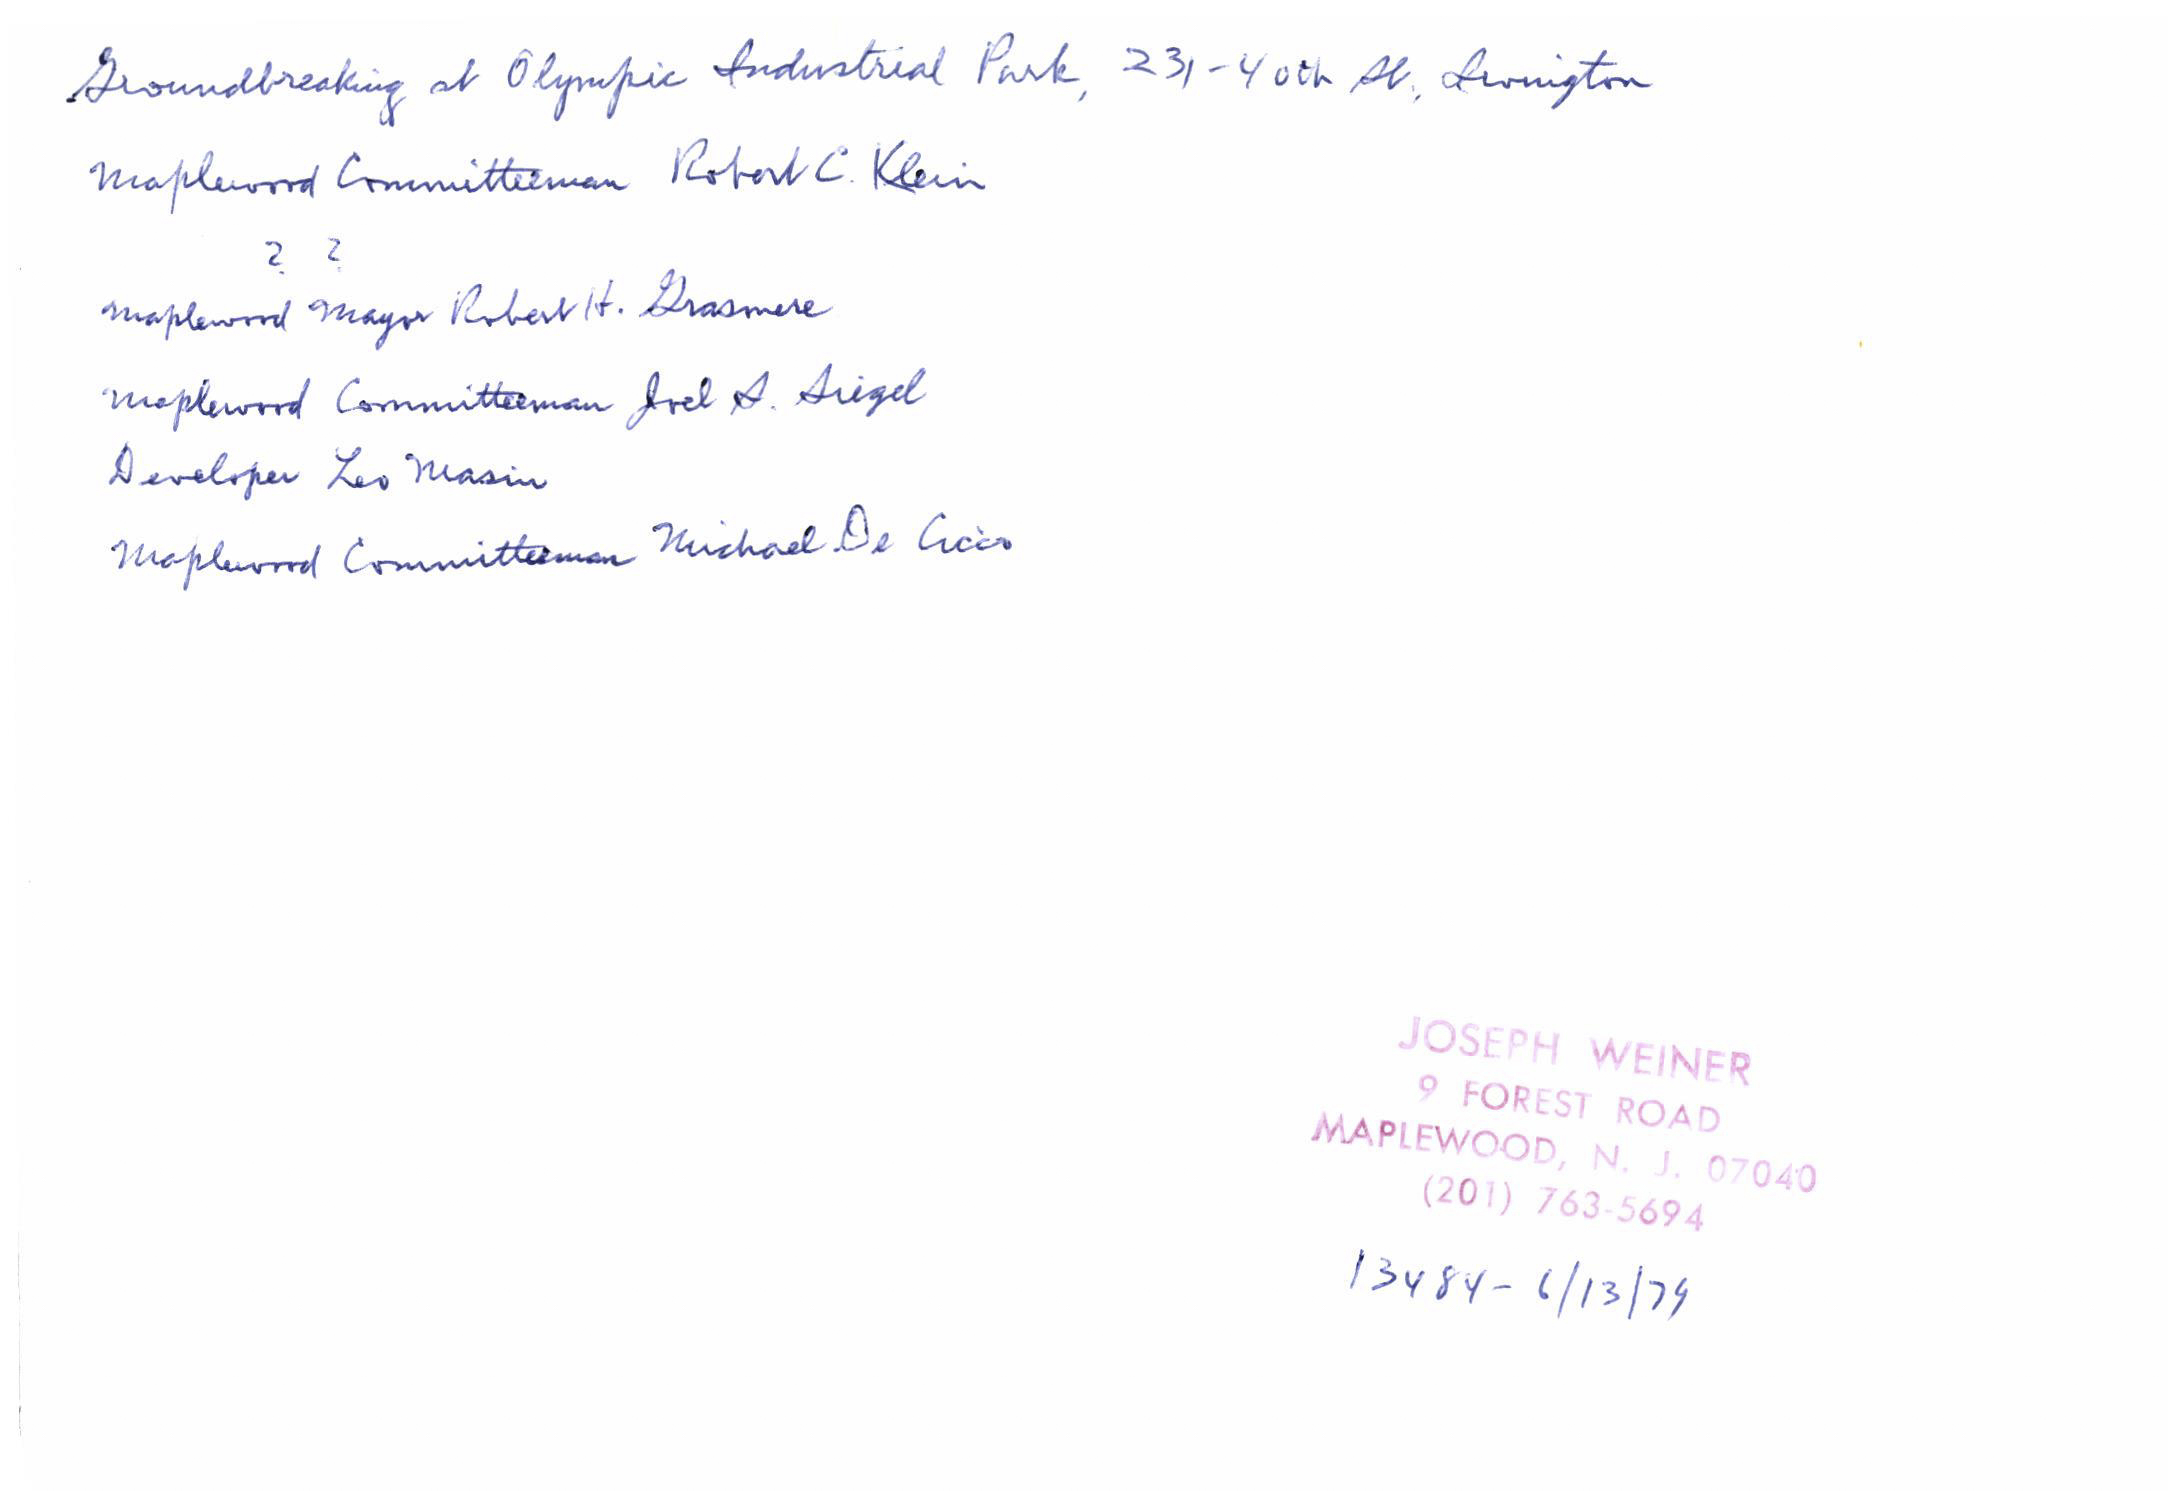 Groundbreaking at Olympic Industrial Park, 231-40th St., Irvington
Maplewood Committeeman Robert C. Klein
? ?
Maplewood Mayor Robert H. Grasmere
Maplewood Committeeman Joel S. Siegel
Developer Leo Masin
Maplewood Committeeman Michael De Cicco
JOSEPH WEINER
9 FOREST ROAD
MAPLEWOOD, N. J. 07040
(201) 763-5694
13484- 6/13/79